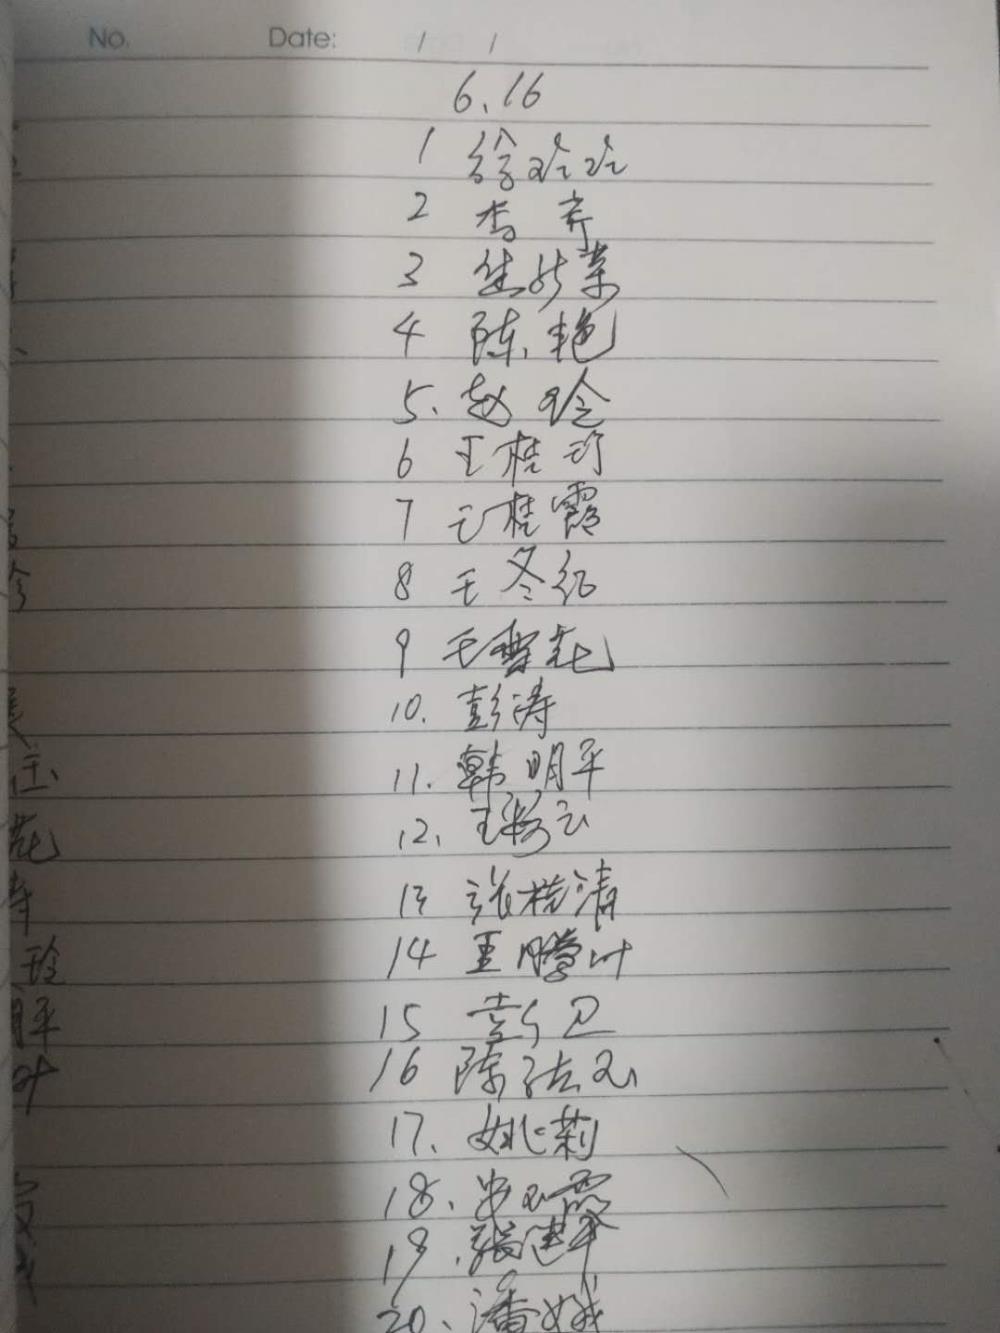 No.
Date: / /
6.16
1 徐玲玲
2 李齐
3
4 陈艳
5. 赵玲
6 王桂珍
7 王桂霞
8 王冬红
9 王雪花
10. 彭涛
11. 韩明平
12. 王彩云
13 张桂清
14 王腾叶
15 彭卫
16 陈玉
17. 姚莉
18. 霞
19. 张建平
20. 潘娥